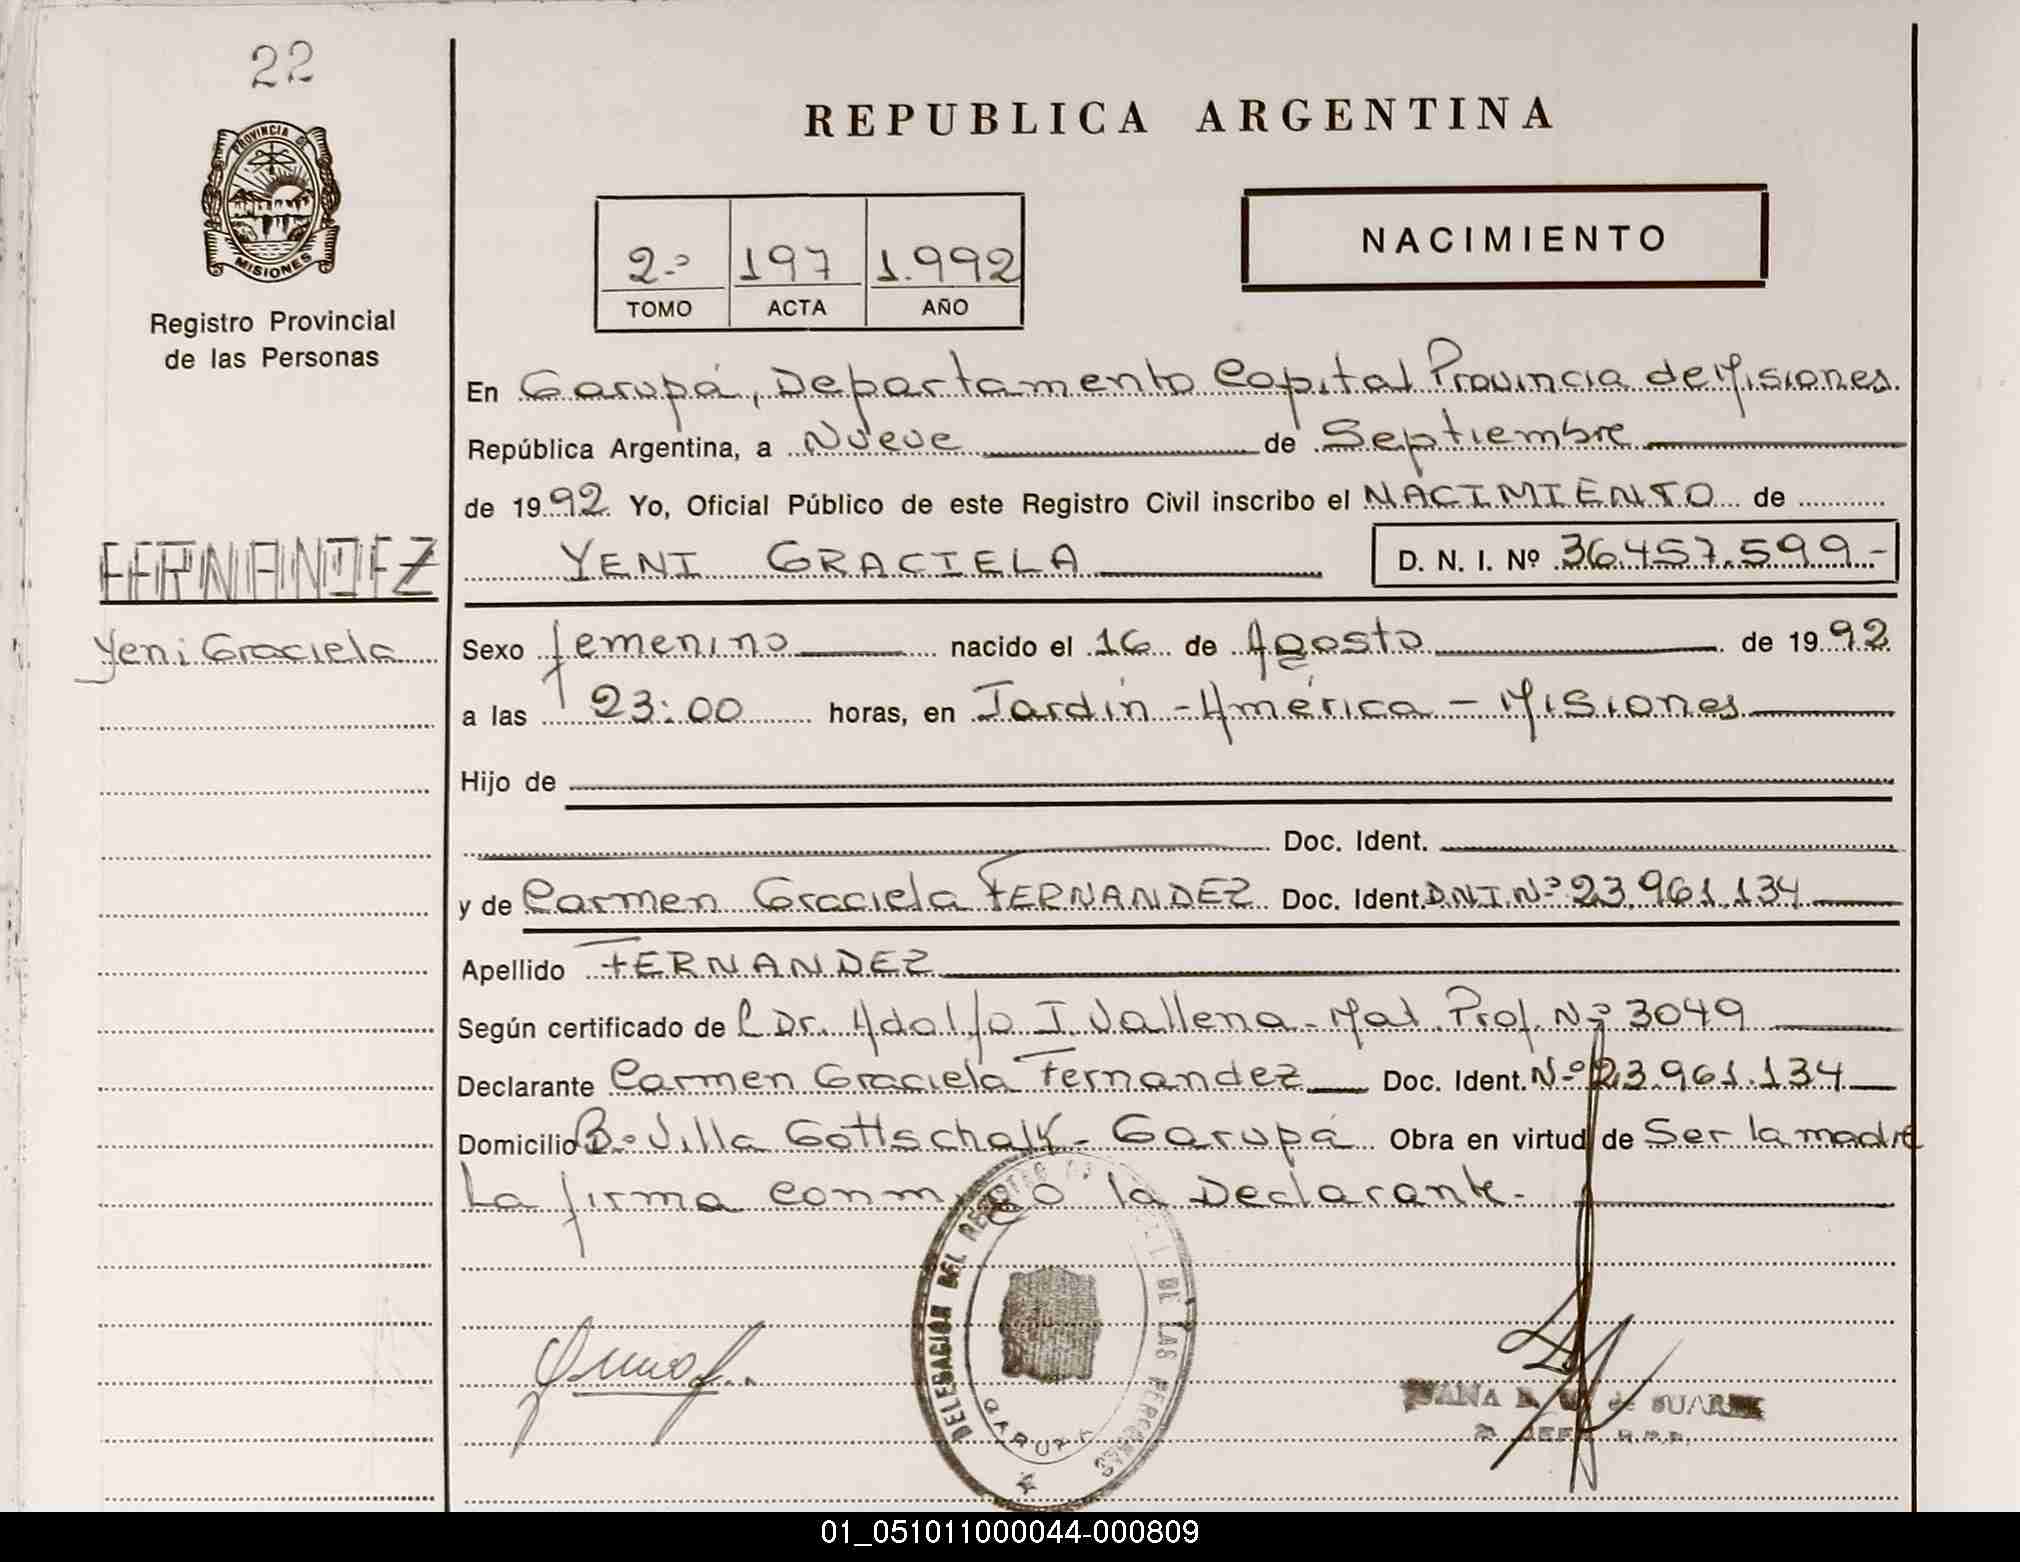 22
PROVINCIA DE
MISIONES
Registro Provincial
de las Personas
FERNANDEZ
Yeni Graciela
REPUBLICA ARGENTINA
2-º 197 1.992
TOMO ACTA AÑO
NACIMIENTO
En Garupá, Departamento Capital Provincia de Misiones.
República Argentina, a Nueve de Septiembre
de 1992 Yo, Oficial Público de este Registro Civil inscribo el NACIMIENTO de
YENI GRACIELA D. N. I. Nº 36.457.599.-
Sexo femenino nacido el 16 de Agosto de 1992
a las 23:00 horas, en Jardín - América - Misiones
Hijo de
Doc. Ident.
y de Carmen Graciela FERNANDEZ Doc. Ident. DNI. Nº 23.961.134
Apellido FERNANDEZ
Según certificado de Dr. Adolfo I. Vallena - Mat. Prof. Nº 3049
Declarante Carmen Graciela Fernandez Doc. Ident. Nº 23.961.134
Domicilio Bº Villa Gottschalk - Garupá Obra en virtud de Ser la madre
La firma conmigo la Declarante.-
DELEGACION DEL REGISTRO DE LAS PERSONAS
GARUPA
JUANA de SUAREZ
JEFE R.P.P.
01_051011000044-000809